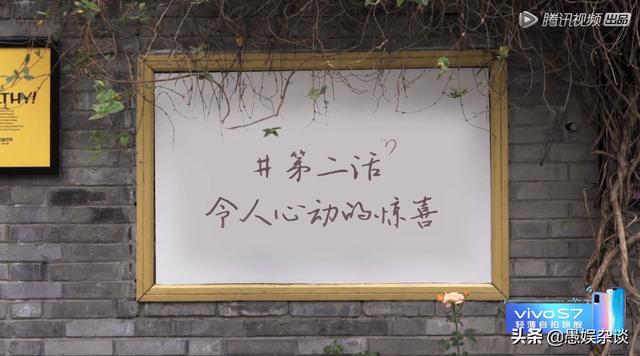 腾讯视频 出品
THY!
#第二话
令人心动的惊喜
vivo S7
轻薄自拍旗舰
头条 @愚娱杂谈